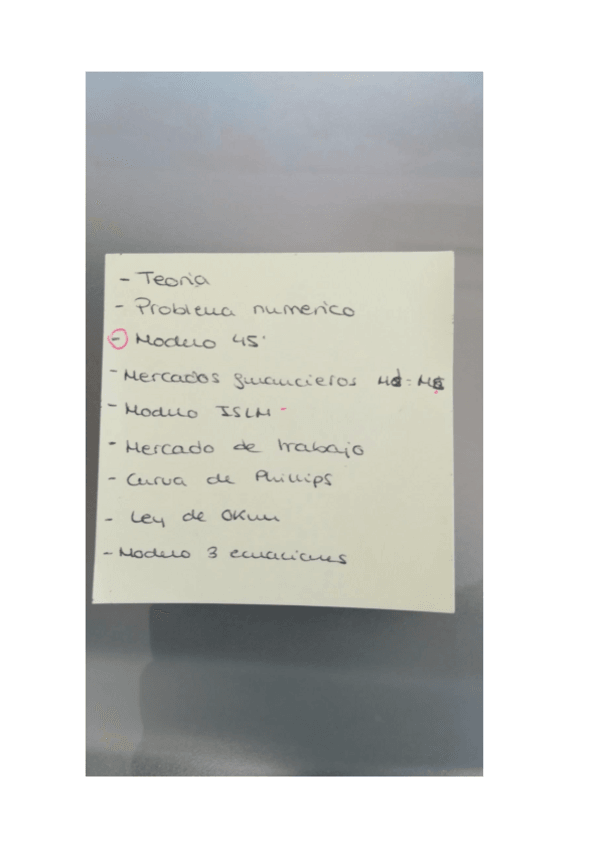 - Teoria
- Problema numerico
- Modelo 45°
- Mercados financieros Md = Ms
- Modelo ISLM -
- Mercado de trabajo
- Curva de Phillips
- Ley de Okun
- Modelo 3 ecuaciones